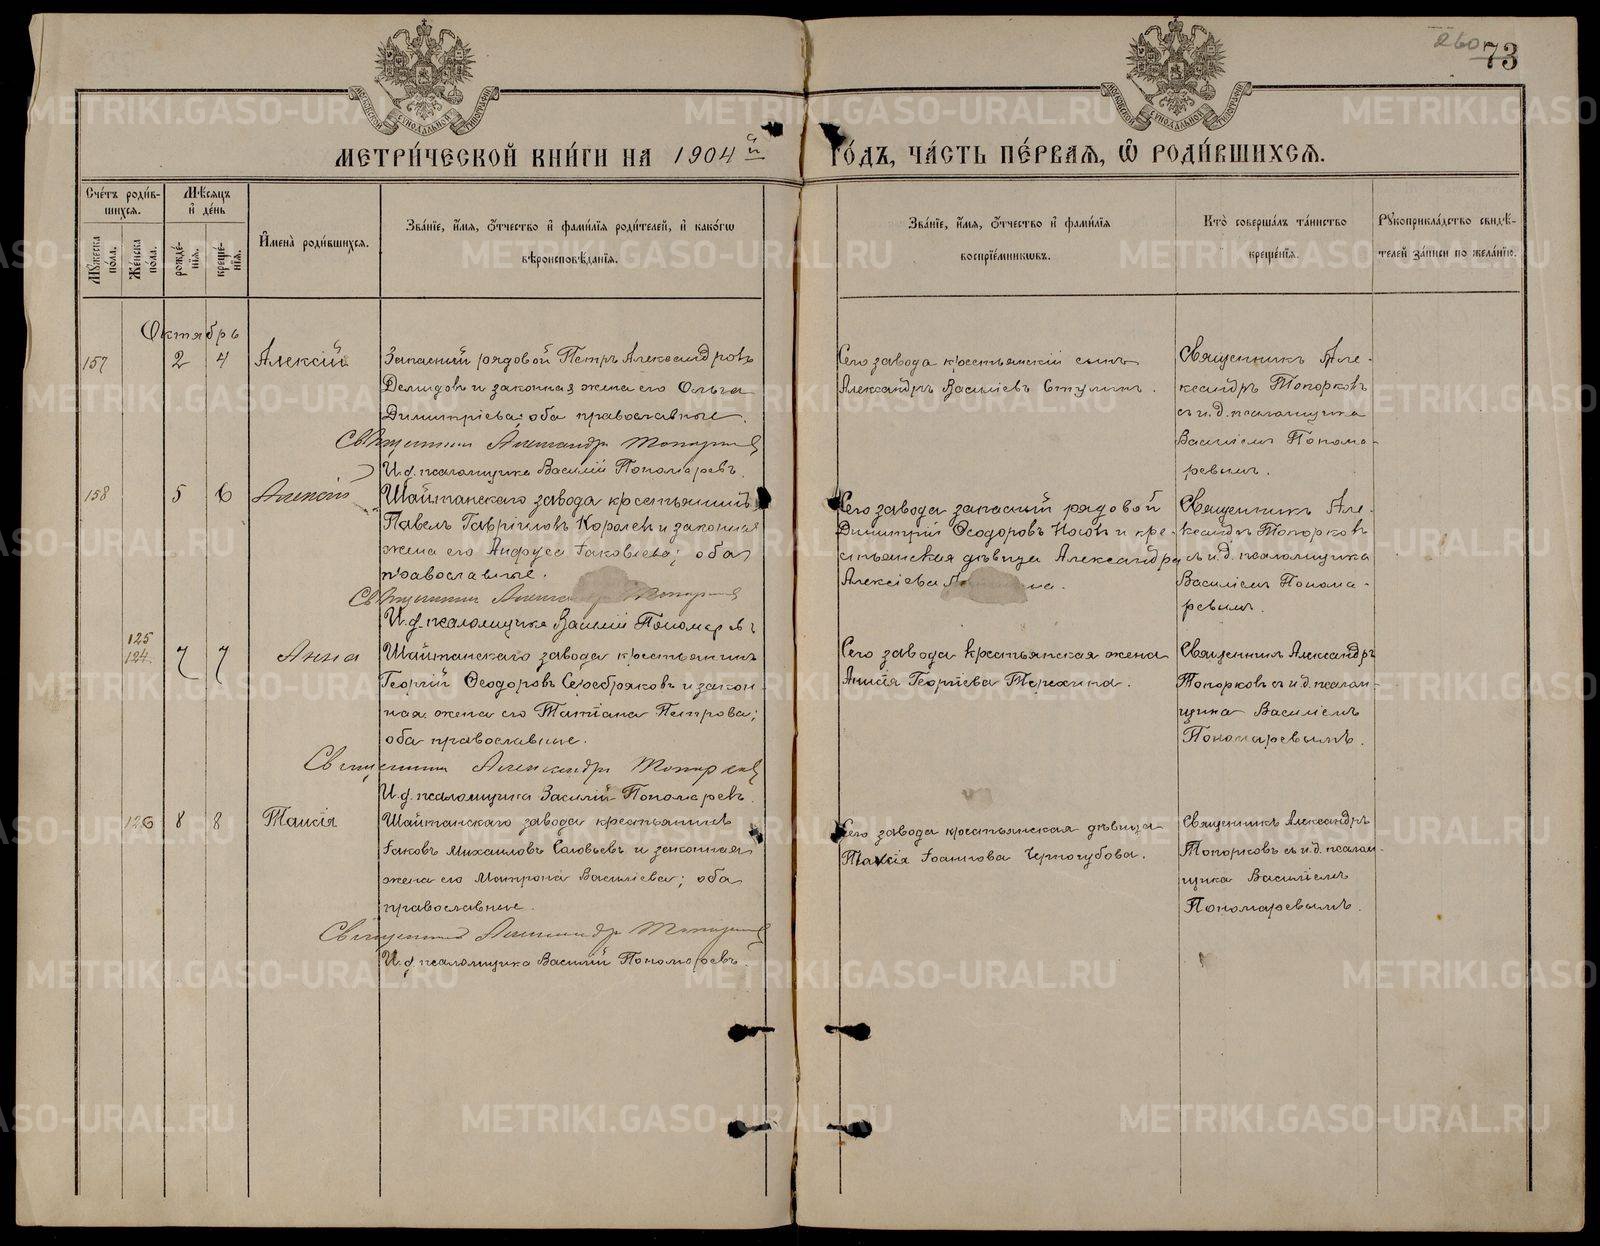 260 73
МЕТРИ́ЧЕСКОЙ КНИ́ГИ НА 1904 й
ГО́ДЪ, ЧА́СТЬ ПЕ́РВАѦ, Ѡ҆ РОДИ́ВШИХСѦ.
Сче́тъ роди́в-
шихсѧ.
Мѣ́сѧцъ
и҆ де́нь
Мꙋ́жеска по́ла.
Же́нска по́ла.
рожде́-
нїѧ.
креще́-
нїѧ.
И҆мена̀ роди́вшихсѧ.
Зва́нїе, и҆́мѧ, ѻ҆́тчество и҆ фами́лїѧ роди́телей, и҆ како́гѡ
вѣроисповѣ́данїѧ.
Зва́нїе, и҆́мѧ, ѻ҆́тчество и҆ фами́лїѧ
воспрїе́мникѡвъ.
Кто̀ соверша́лъ та́инство
креще́нїѧ.
Рꙋкоприкла́дство свидѣ́-
телей за́писи по жела́нїю.
Октябрь
157 2 4 Алексій
Запасный рядовой Петръ Александровъ
Демидовъ и законная жена его Ольга
Димитріева; оба православные.
Священникъ Александръ Топорковъ
И.д. псаломщика Василій Пономаревъ.
Сего завода крестьянскій сынъ
Александръ Василіевъ Стулинъ.
Священникъ Але-
ксандръ Топорковъ
съ и.д. псаломщика
Василіемъ Понома-
ревымъ.
158 5 6 Алексій
Шайтанскаго завода крестьянинъ
Павелъ Гавріиловъ Королевъ и законная
жена его Анфуса Іаковлева; оба
православные.
Священникъ Александръ Топорковъ
И.д. псаломщика Василій Пономаревъ
Сего завода запасный рядовой
Димитрій Ѳеодоровъ Носовъ и кре-
стьянская дѣвица Александра
Алексіева
Священникъ Але-
ксандръ Топорковъ
съ и.д. псаломщика
Василіемъ Понома-
ревымъ.
125
124. 7 7 Анна
Шайтанскаго завода крестьянинъ
Георгій Ѳеодоровъ Серебряковъ и закон-
ная жена его Татіана Петрова;
оба православные.
Священникъ Александръ Топорковъ
И.д. псаломщика Василій Пономаревъ.
Сего завода крестьянская жена
Анисія Георгіева Терехина.
Священникъ Александръ
Топорковъ съ и.д. псалом-
щика Василіемъ
Пономаревымъ.
126 8 8 Таисія
Шайтанскаго завода крестьянинъ
Іаковъ Михаиловъ Соловьевъ и законная
жена его Матрона Василіева; оба
православные.
Священникъ Александръ Топорковъ
И.д. псаломщика Василій Пономаревъ.
Сего завода крестьянская дѣвица
Таисія Іоаннова Черногубова.
Священникъ Александръ
Топорковъ съ и.д. псалом-
щика Василіемъ
Пономаревымъ.
METRIKI.GASO-URAL.RU